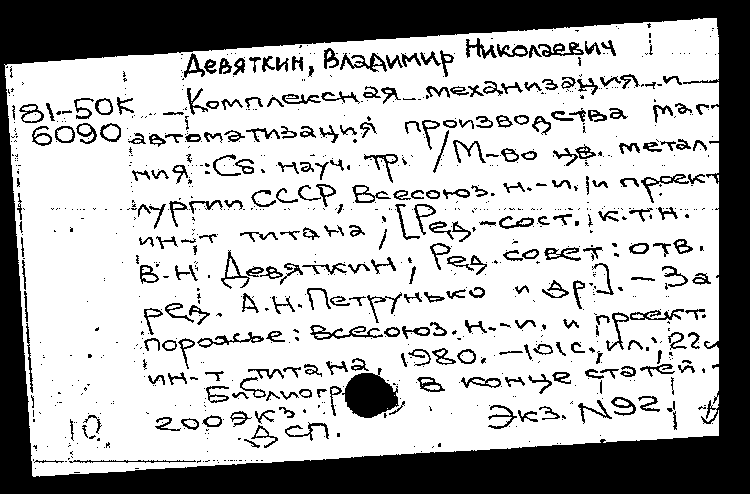 Девяткин, Владимир Николаевич
81-50К Комплексная механизация и
6090 автоматизация производства маг-
ния : Сб. науч. тр. / М-во цв. метал-
лургии СССР, Всесоюз. н.-и. и проект.
ин-т титана ; [Ред.-сост. к.т.н.
В.Н. Девяткин ; Ред. совет : отв.
ред. А.Н. Петрунько и др.]. - За-
порожье : Всесоюз. н.-и. и проект.
ин-т титана, 1980. - 101 с., ил.; 22 см
Библиогр. в конце статей. -
200 экз. Экз. N92.
10 ДСП.